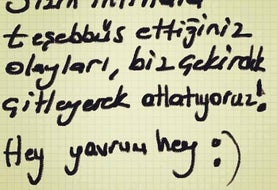 Sizin intihara
teşebbüs ettiğiniz
olayları, biz çekirdek
çitleyerek atlatıyoruz!
Hey yavrum hey :)